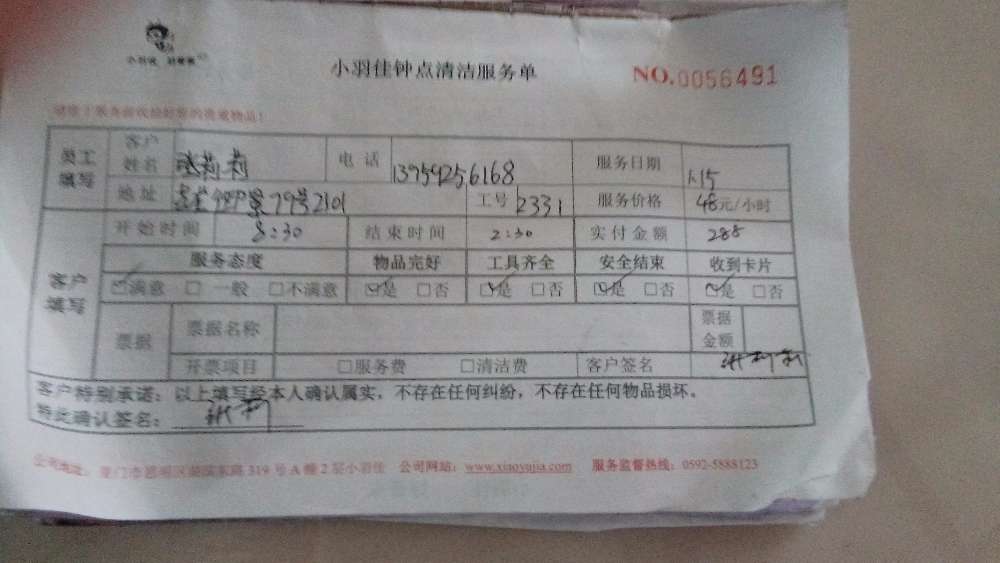 小羽佳钟点清洁服务单 NO.0056491
请您于服务前收拾好您的贵重物品!
员工填写 客户姓名 张莉莉 电话 13959256168 服务日期 1.15
地址 79号2101 工号 2331 服务价格 48元/小时
客户填写 开始时间 8:30 结束时间 2:30 实付金额 288
服务态度 物品完好 工具齐全 安全结束 收到卡片
☑满意 □一般 □不满意 ☑是 □否 ☑是 □否 ☑是 □否 ☑是 □否
票据 票据名称 票据金额
开票项目 □服务费 □清洁费 客户签名 张莉莉
客户特别承诺:以上填写经本人确认属实,不存在任何纠纷,不存在任何物品损坏。
特此确认签名:张莉
公司地址:厦门市思明区莲前东路319号A幢2层小羽佳 公司网站:www.xiaoyujia.com 服务监督热线:0592-5888123